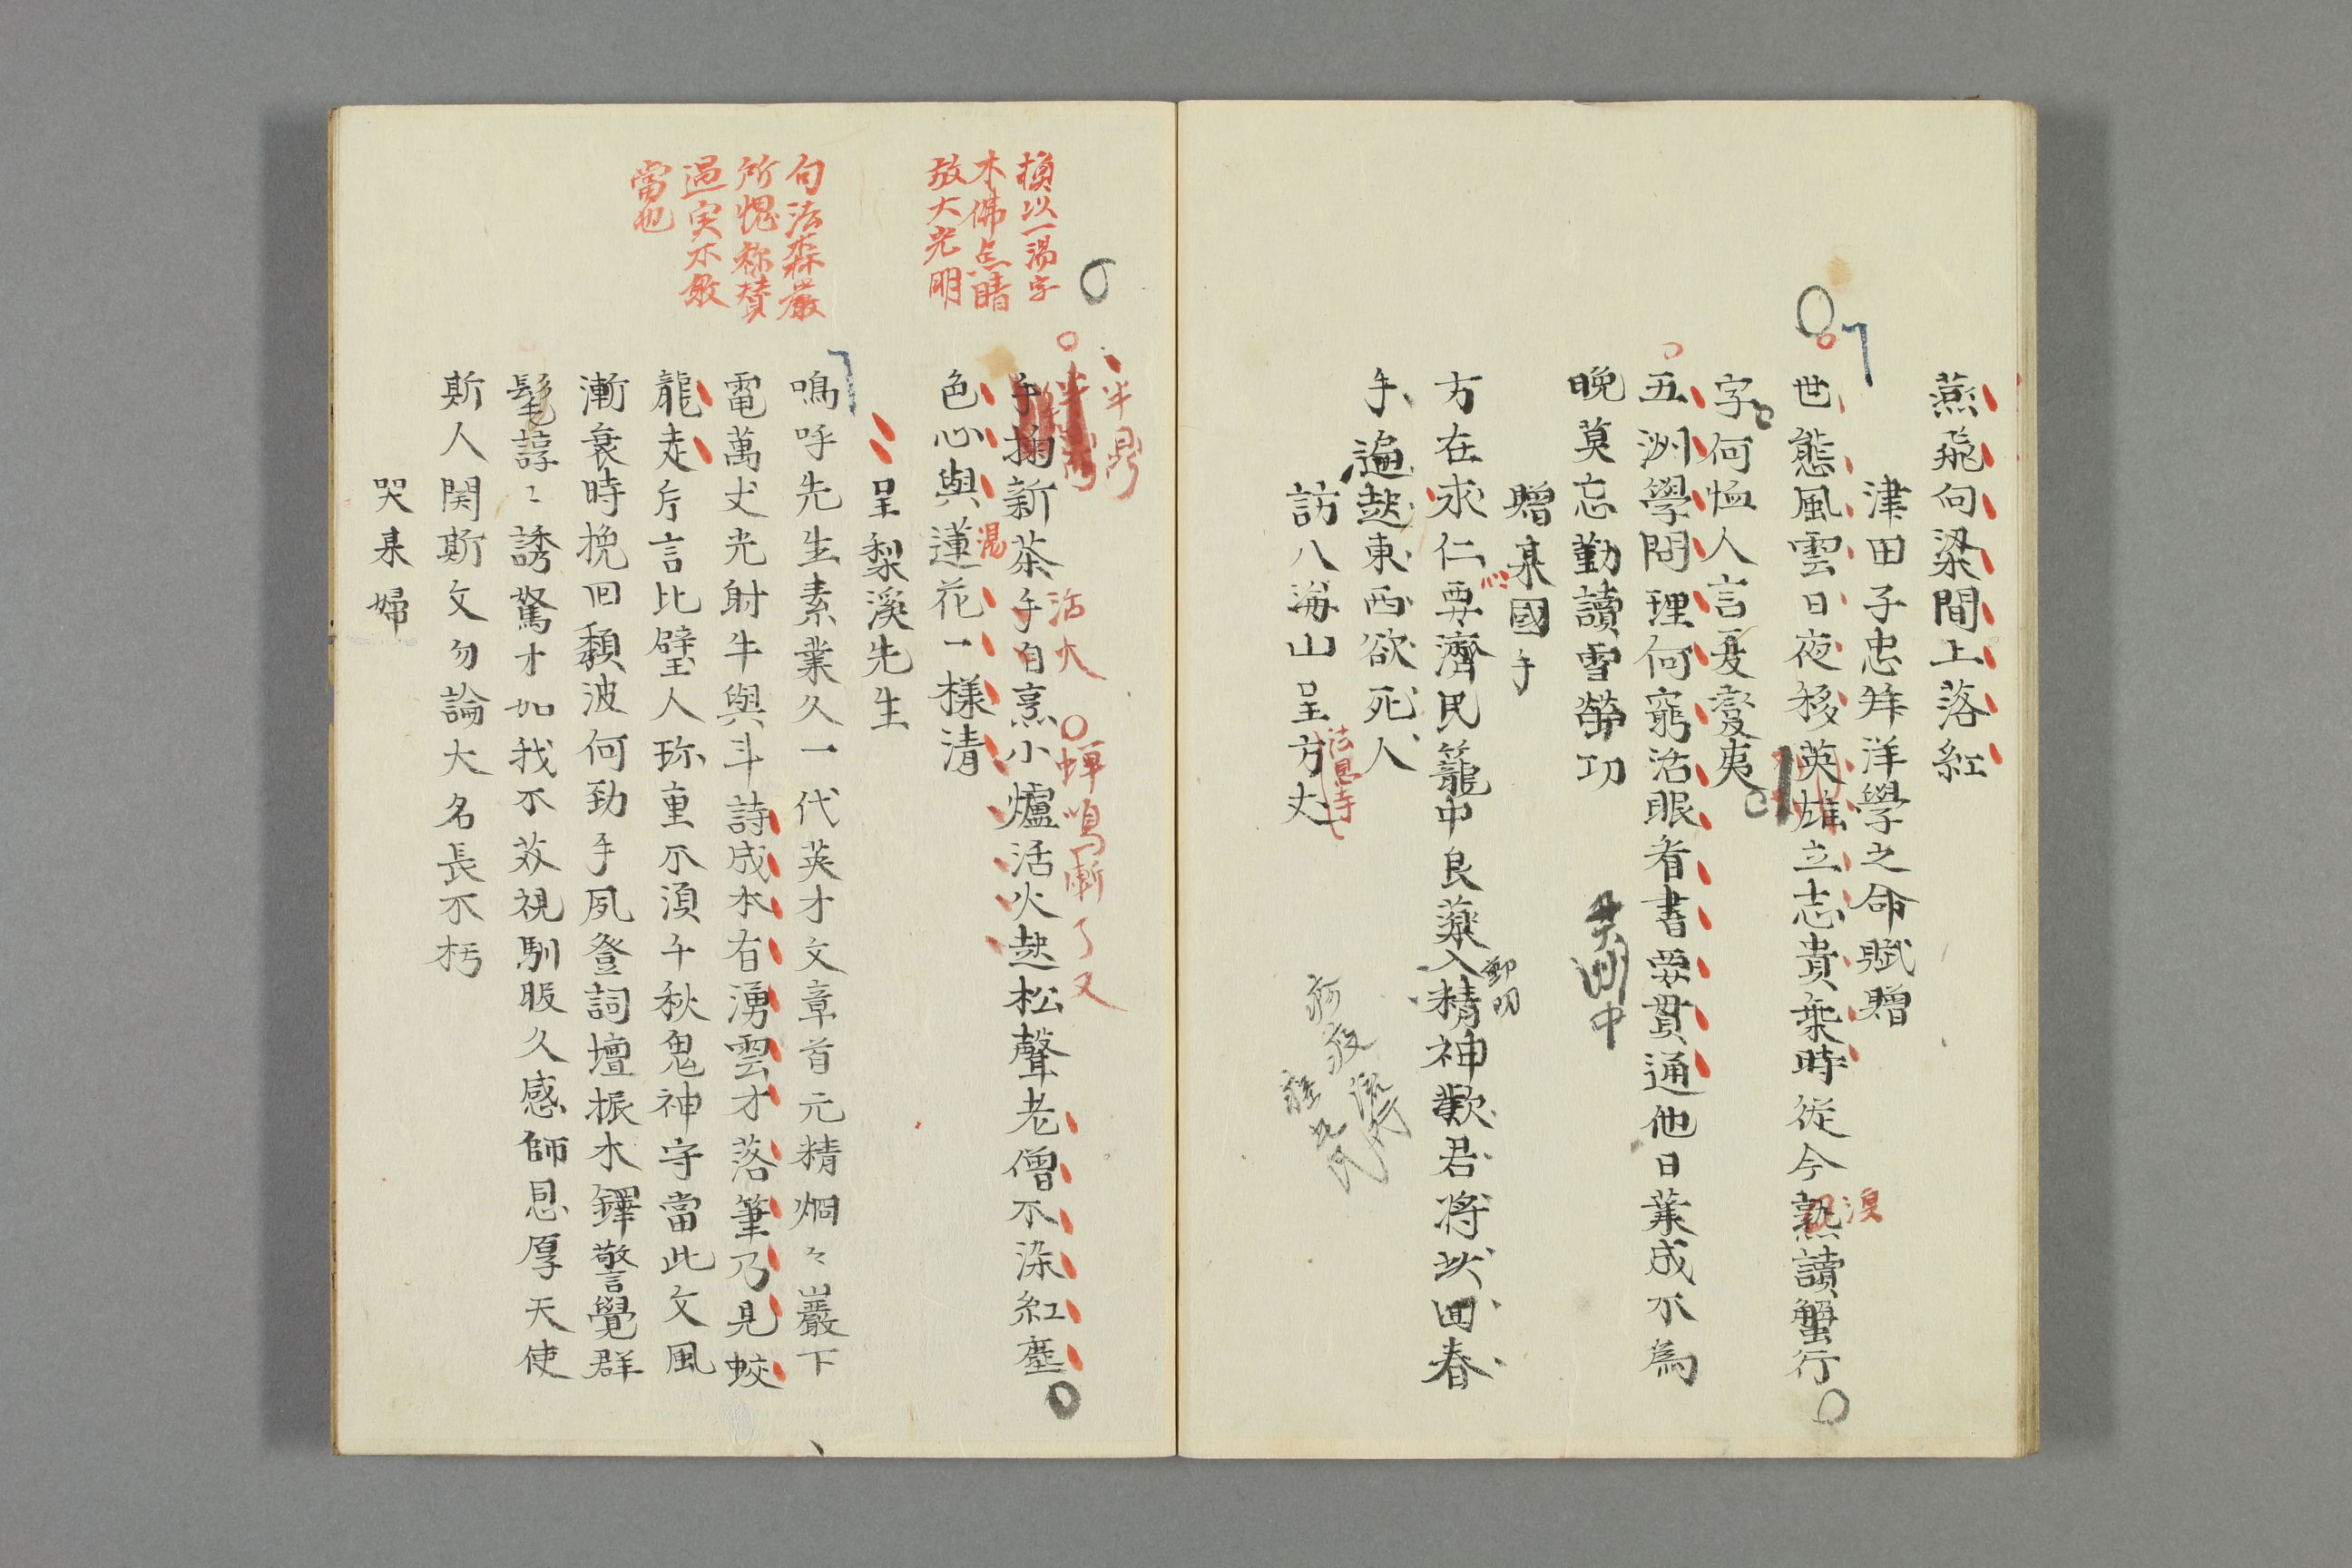 燕飛向梁間上落紅
津田子忠拜洋學之命賦贈
世態風雲日夜移英雄立志貴乗時從今熟讀蟹行
須
字何恤人言憂變夷
五洲學問理何窮活眼看書要貫通他日業成不為
晩莫忘勤讀雪螢功
贈某國手
方在求仁要濟民籠中良藥入精神歎君将此回春
心
手遍起東西欲死人
訪八海山呈方丈
法恩寺
半鼎
手掬新茶手自烹小爐活火起松聲老僧不染紅塵
活火
蝉鳴漸了又
色心與蓮花一樣清
混
換以一湯字
木佛点睛
放大光明
呈梨溪先生
嗚呼先生素業久一代英才文章首元精烱々巖下
電萬丈光射牛與斗詩成本有湧雲才落筆乃見蛟
龍走片言比璧人珎重不須千秋鬼神守當此文風
漸衰時挽回頽波何勁手夙登詞壇振木鐸警覺群
髦諄〻誘駑才如我不效視馴服久感師恩厚天使
斯人関斯文勿論大名長不朽
句法森嚴
所愧称賛
過実不敢
當也
哭某婦